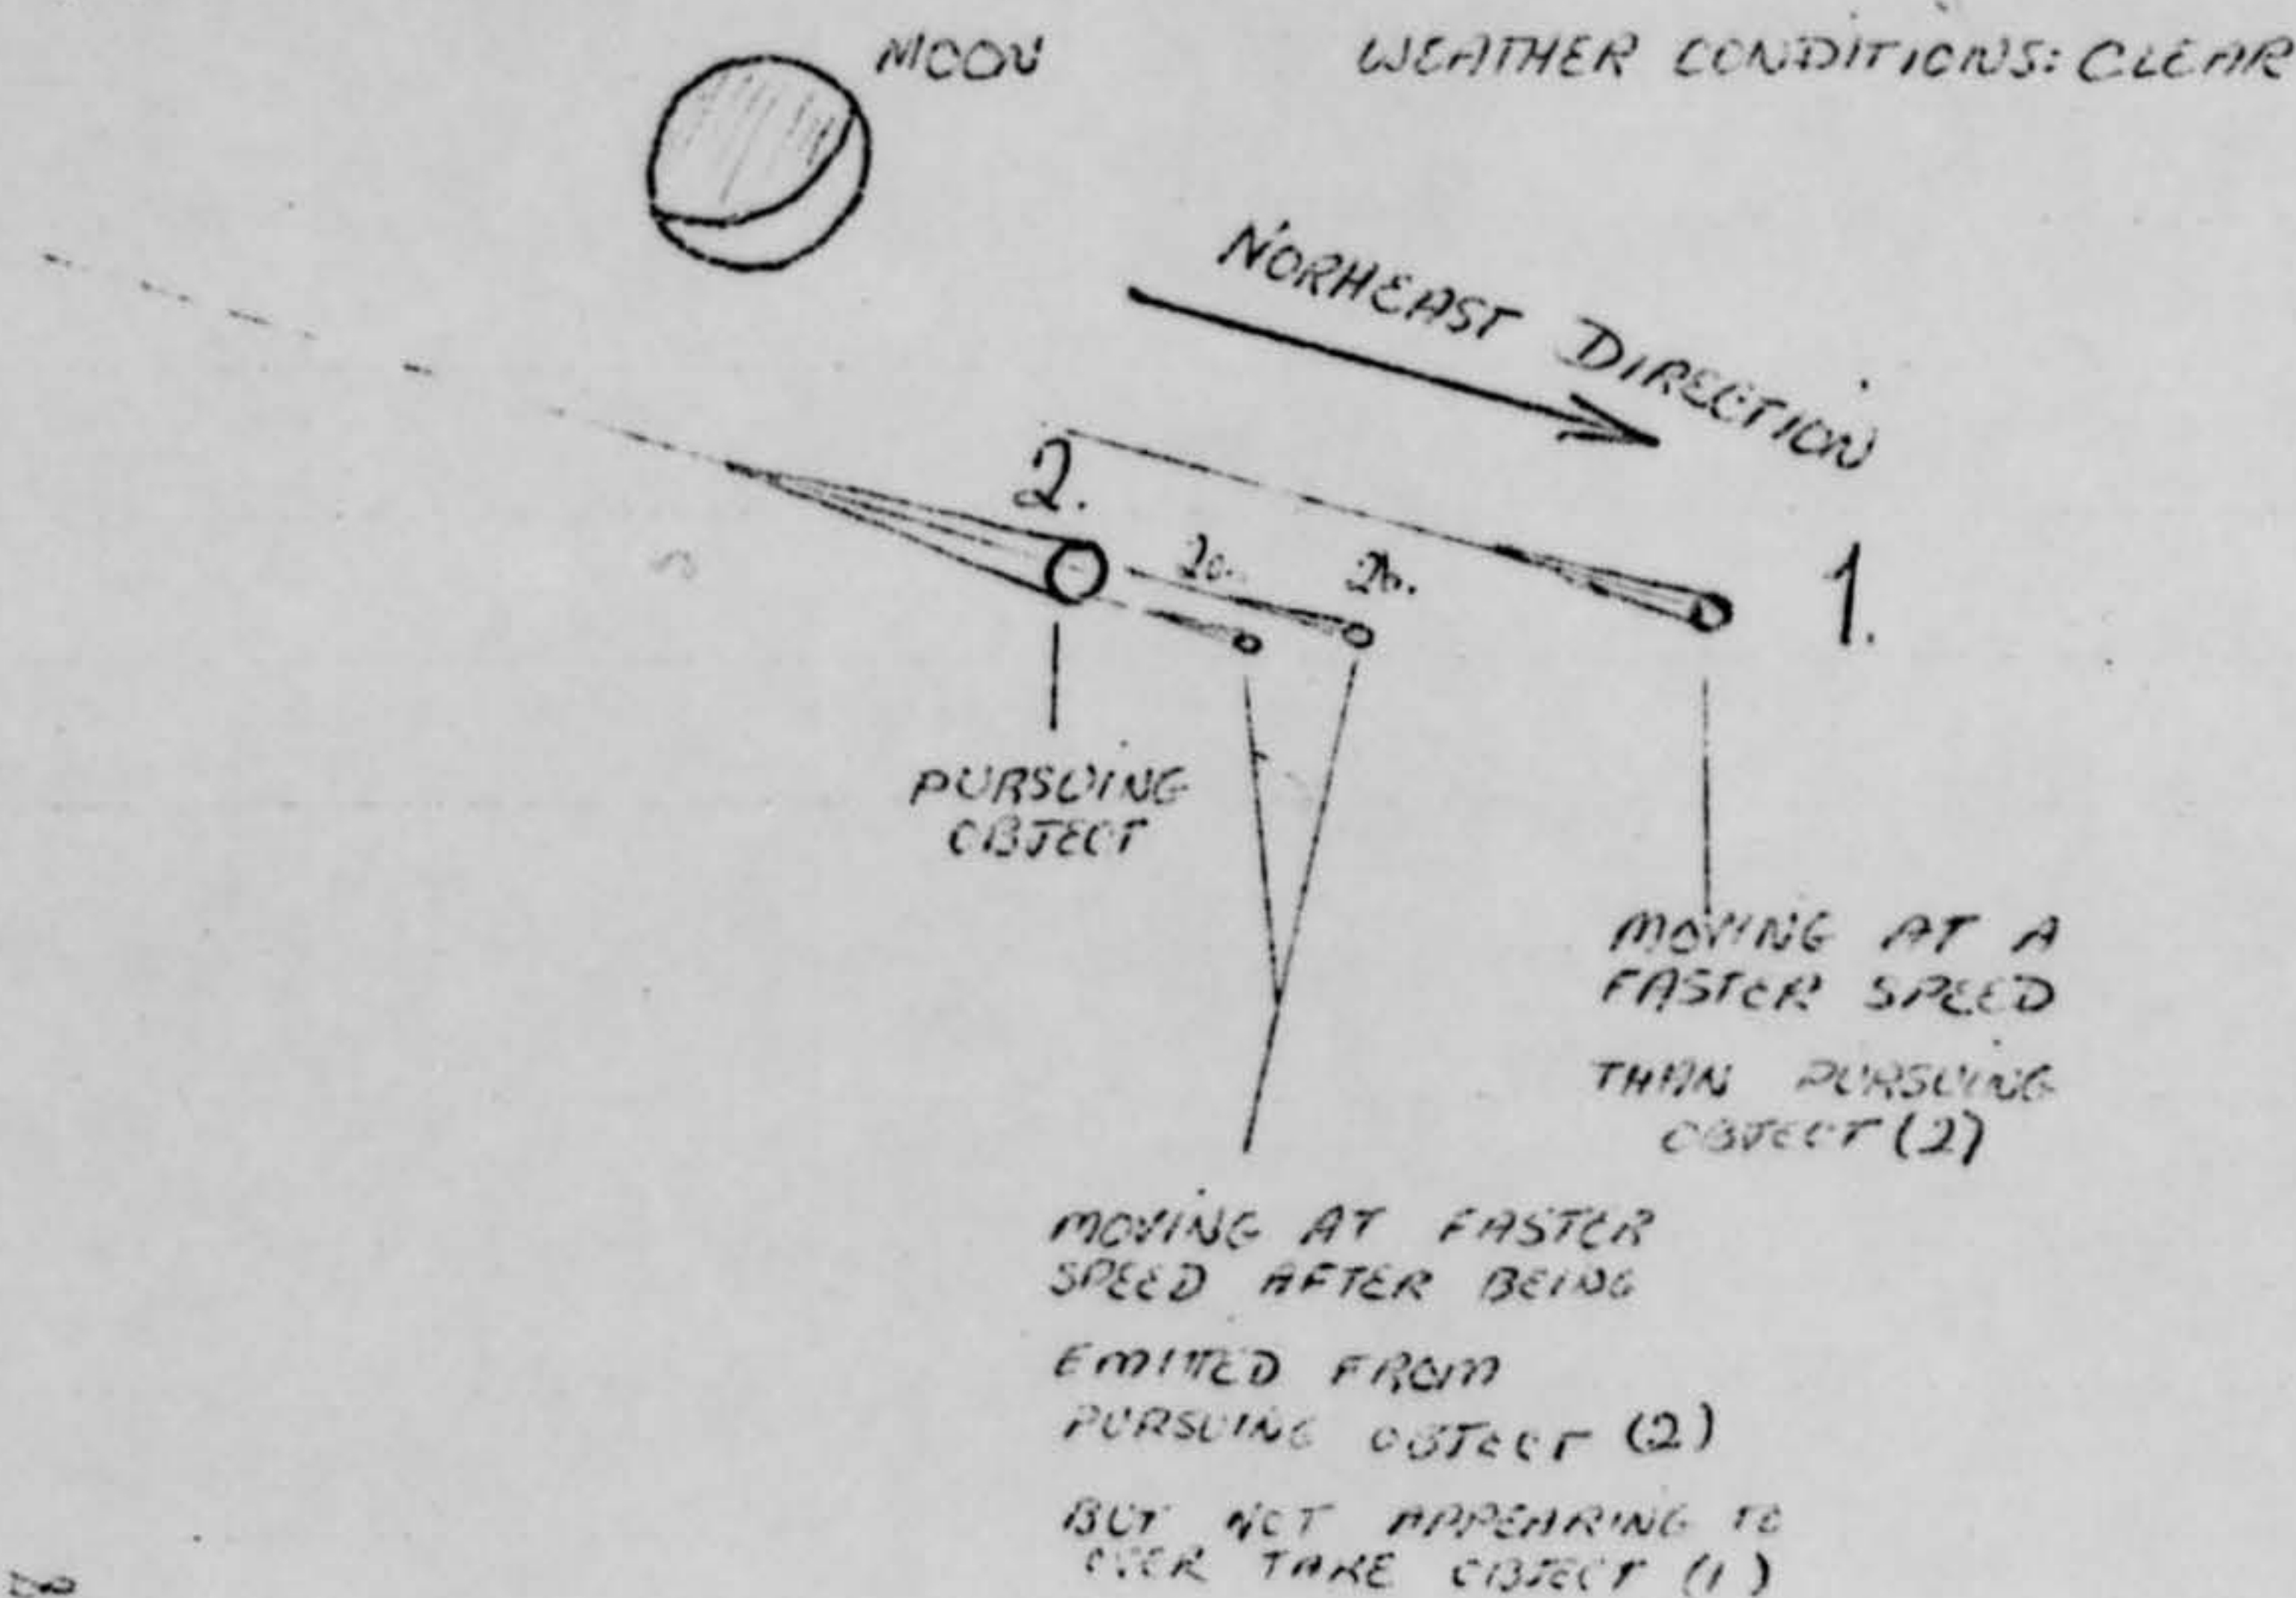 MOON
WEATHER CONDITIONS: CLEAR
NORHEAST DIRECTION
2.
2a.
2b.
1.
PURSUING
OBJECT
MOVING AT A
FASTER SPEED
THAN PURSUING
OBJECT (2)
MOVING AT FASTER
SPEED AFTER BEING
EMITTED FROM
PURSUING OBJECT (2)
BUT NOT APPEARING TO
OVER TAKE OBJECT (1)